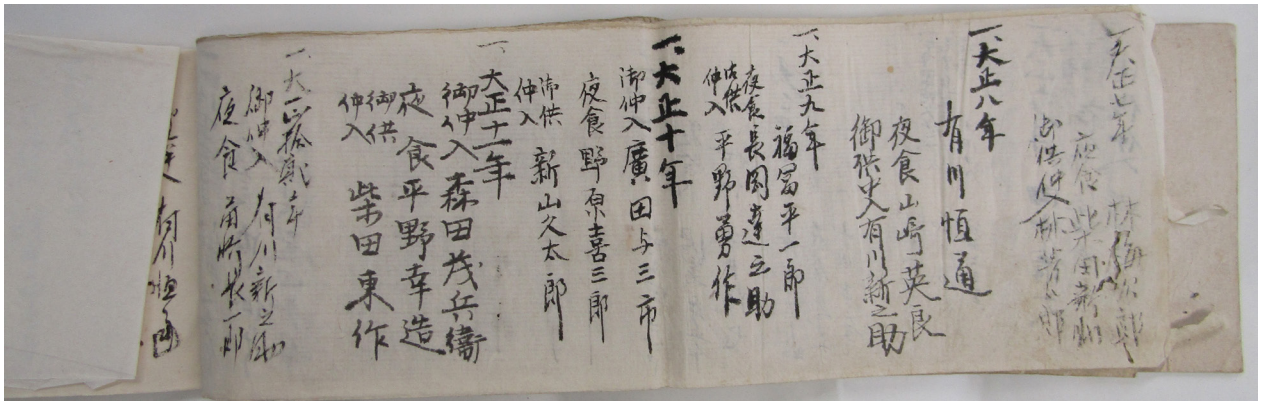 一、大正七年 林
夜食 柴田
御供仲入 林
一、大正八年
有川恒通
夜食 山崎英良
御供中入 有川新之助
一、大正九年
福冨平一郎
夜食 長岡達之助
御供
仲入 平野勇作
一、大正十年
御仲入 廣田与三市
夜食 野原喜三郎
御供
仲入 新山久太郎
一、大正十一年
御仲入 森田茂兵衞
夜食 平野幸造
御供
仲入 柴田東作
一、大正拾貳年
御仲入 有川新之助
夜食 長一郎
有川恒通